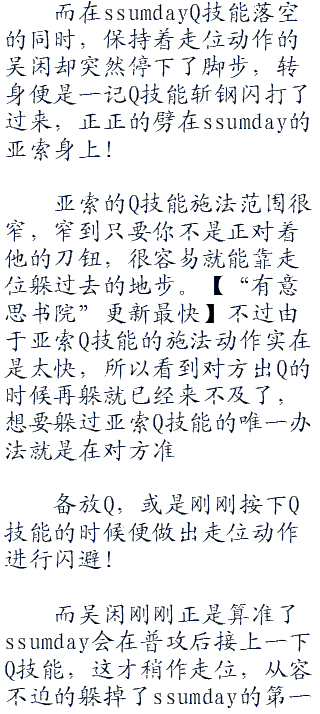 而在ssumdayQ技能落空
的同时，保持着走位动作的
吴闲却突然停下了脚步，转
身便是一记Q技能斩钢闪打了
过来，正正的劈在ssumday的
亚索身上！
亚索的Q技能施法范围很
窄，窄到只要你不是正对着
他的刀钮，很容易就能靠走
位躲过去的地步。【“有意
思书院”更新最快】不过由
于亚索Q技能的施法动作实在
是太快，所以看到对方出Q的
时候再躲就已经来不及了，
想要躲过亚索Q技能的唯一办
法就是在对方准
备放Q，或是刚刚按下Q
技能的时候便做出走位动作
进行闪避！
而吴闲刚刚正是算准了
ssumday会在普攻后接上一下
Q技能，这才稍作走位，从容
不迫的躲掉了ssumday的第一